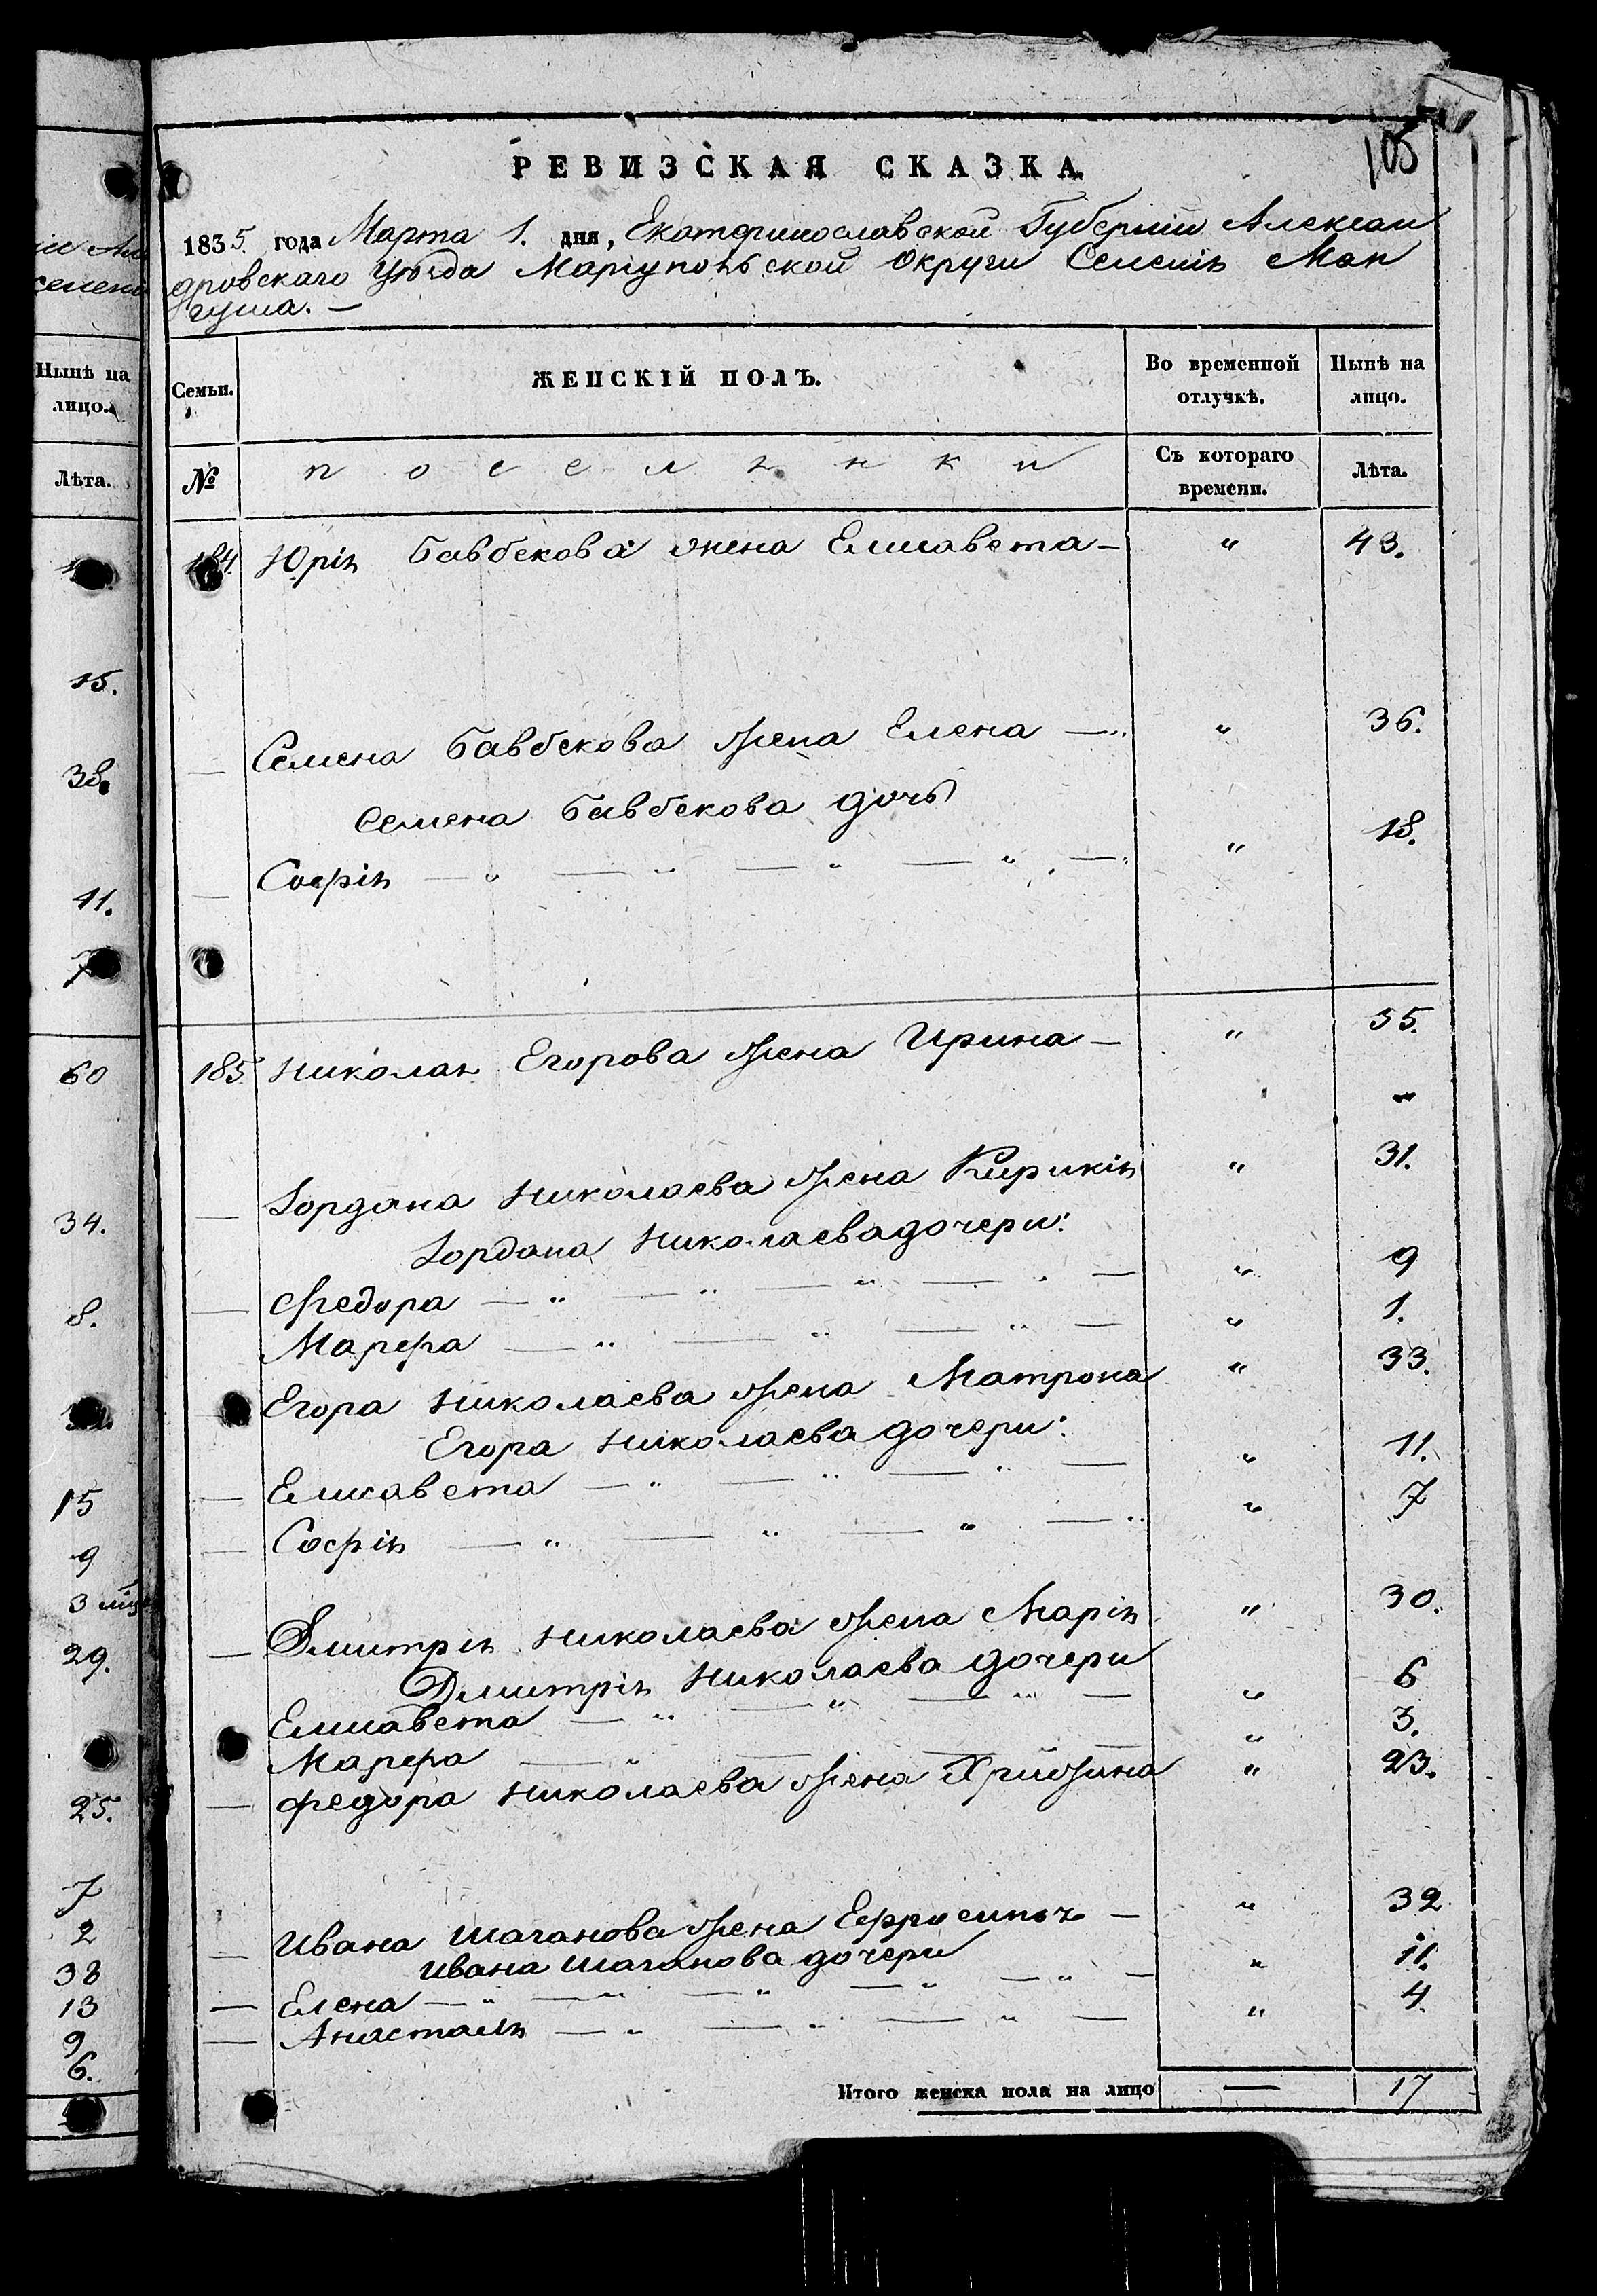 105
РЕВИЗСКАЯ СКАЗКА
1835 года Марта 1. дня, Екатеринославской Губерніи Алексан
дровскаго Уѣзда Маріупольской округи Селенія Ман
гуша. —
Семьи. ЖЕНСКІЙ ПОЛЪ. Во временной отлучкѣ. Нынѣ на лицо.
№ поселянки Съ котораго времени. Лѣта.
184. Юрія Бавбекова жена Елисавета — " 43.
— Семена Бавбекова жена Елена — " 36.
Семена Бавбекова дочь
— Софія — " — " — " — " — " 18.
185 Николая Егорова жена Ирина — " 55.
— Іордана Николаева жена Кирикія " 31.
Іордана Николаева дочери:
— Федора — " — " — " — " — " 9
Марфа — " — " — " — " 1.
Егора Николаева жена Матрона " 33.
Егора Николаева дочери:
— Елисавета — " — " — " — " 11.
— Софія — " — " — " — " 7
— Дмитрія Николаева жена Марія " 30.
Дмитрія Николаева дочери
Елисавета — " — " — " — " 6
Марфа — " — — " 3.
— Федора Николаева жена Христина " 23.
— Ивана Шаганова жена Ефросинья — " 32
Ивана Шаганова дочери
— Елена — " — " — " — " — " — " 11.
— Анастасія — " — " — " — " 4.
Итого женска пола на лицо — 17
Нынѣ на
лицо.
Лѣта.
15.
38.
41.
7
60
34.
8.
15
9
3
29.
25.
7
2
38
13
9
6.